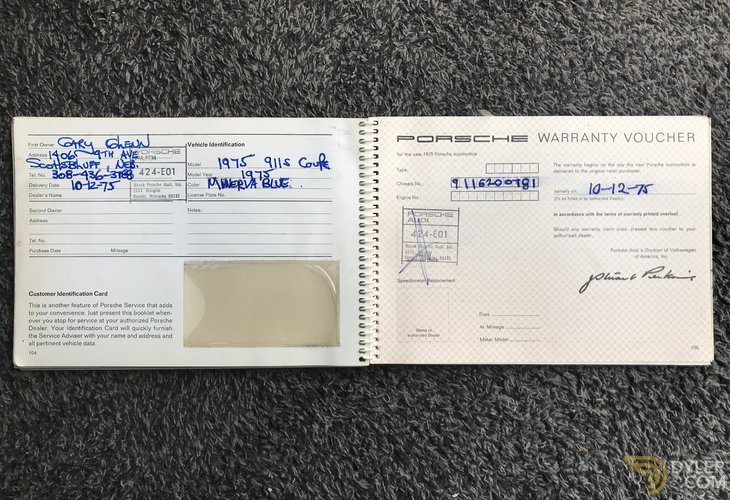 First Owner GARY GLENN
Address 1406 9TH AVE
SCOTTSBLUFF, NEB.
Tel. No. 308-436-3788
Delivery Date 10-12-75
Dealer's Name
PORSCHE
AUDI
424-E01
Novak Porsche Audi, Inc.
Omaha, Nebraska 68131
Second Owner
Address
Tel. No.
Purchase Date Mileage
Vehicle Identification
Model 1975 911S COUPE
Model Year 1975
Color MINERVA BLUE
License Plate No.
Notes:
Customer Identification Card
This is another feature of Porsche Service that adds
to your convenience. Just present this booklet when-
ever you stop for service at your authorized Porsche
Dealer. Your Identification Card will quickly furnish
the Service Adviser with your name and address and
all pertinent vehicle data.
104
PORSCHE WARRANTY VOUCHER
for the new 1975 Porsche automobile
Type:
Chassis No. 9116200781
Engine No.
PORSCHE
AUDI
424-E01
Speedometer Replacement
Stamp of
Authorized Dealer
Date
At Mileage
Make: Model
The warranty begins on the day the new Porsche automobile is
delivered to the original retail purchaser,
namely on 10-12-75
(To be filled in by authorized Dealer)
In accordance with the terms of warranty printed overleaf.
Should any warranty claim arise, present this voucher to your
authorized dealer.
Porsche Audi a Division of Volkswagen
of America, Inc.
105
DYLER
.COM